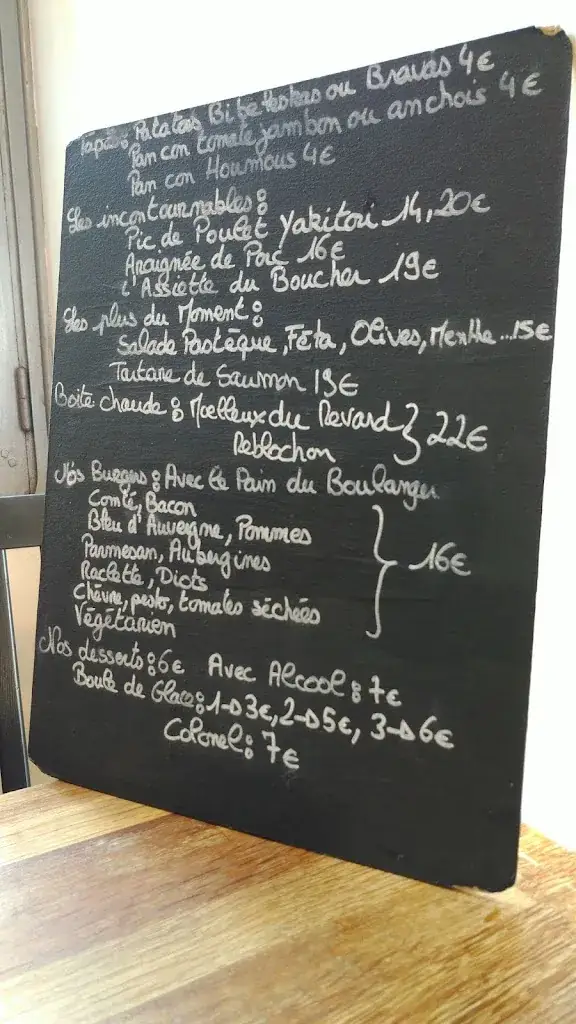 Tapas: Patatas Bibeleskas ou Bravas 4€
Pan con tomate jambon ou anchois 4€
Pan con Houmous 4€
Les incontournables:
Pic de Poulet Yakitori 14,20€
Araignée de Porc 16€
L'Assiette du Boucher 19€
Les plus du Moment:
Salade Pastèque, Féta, Olives, Menthe...15€
Tartare de Saumon 19€
Boite chaude: Moelleux du Revard } 22€
Reblochon
Nos Burgers: Avec le Pain du Boulanger
Comté, Bacon
Bleu d'Auvergne, Pommes
Parmesan, Aubergines } 16€
Raclette, Diots
Chèvre, pesto, tomates séchées
Végétarien
Nos desserts: 6€ Avec Alcool: 7€
Boule de Glace: 1→3€, 2→5€, 3→6€
Colonel: 7€